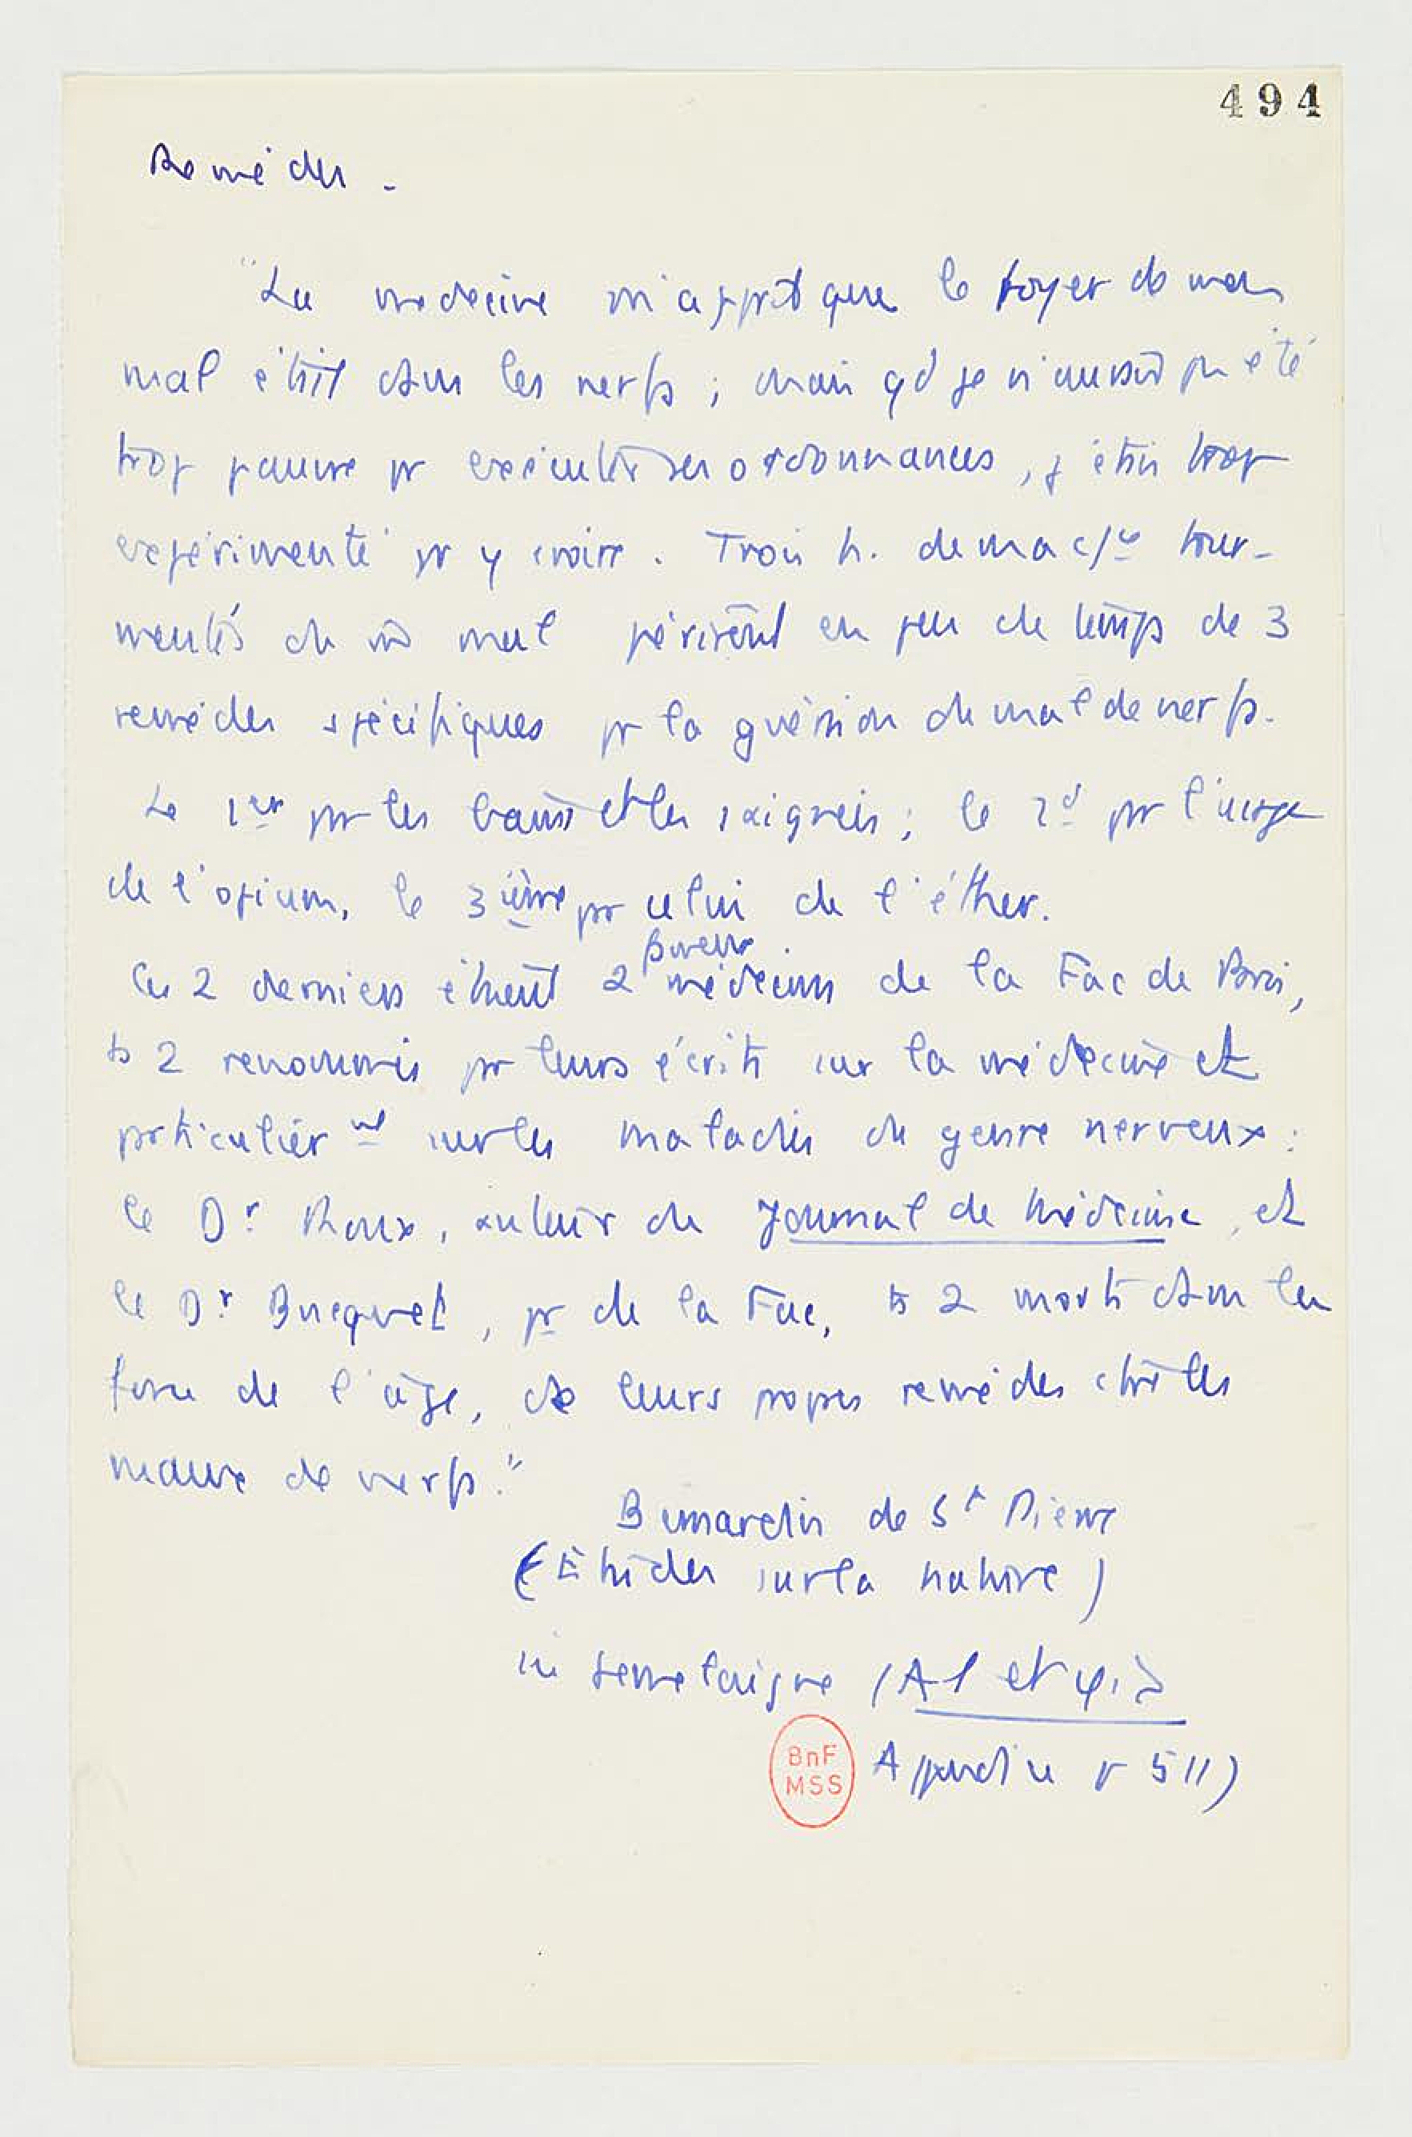 494
Remèdes -
"La médecine m'apprit que le foyer de mon
mal était dans les nerfs ; mais qd je n'aurais pas été
trop pauvre pr exécuter ses ordonnances, j'étais trop
expérimenté pr y croire. Trois h. de ma c/ce tour-
mentés du m̄ mal périrent en peu de temps de 3
remèdes spécifiques pr la guérison du mal de nerfs.
Le 1er par les bains et les saignées ; le 2d par l'usage
de l'opium, le 3ième par celui de l'éther.
fameux
Ces 2 derniers étaient 2 médecins de la Fac de Paris,
ts 2 renommés par leurs écrits sur la médecine et
particulièrmt sur les maladies du genre nerveux :
le Dr Roux, auteur du Journal de Médecine, et
le Dr Bucquet, pr de la Fac, ts 2 morts dans la
force de l'âge, de leurs propres remèdes ctre les
maux de nerfs."
Bernardin de St Pierre
(Etudes sur la nature)
in Semelaigne (Al et φie
BnF
MSS
Appendice p 511)